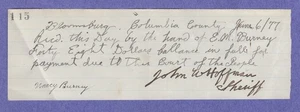 115
Bloomsburg, Columbia County, June 6/77
Recd. this Day by the hand of E.M. Burney
Forty Eight Dollars ballance in full for
payment due to this Court of the People
John W Hoffman
Sheriff
Nancy Burney